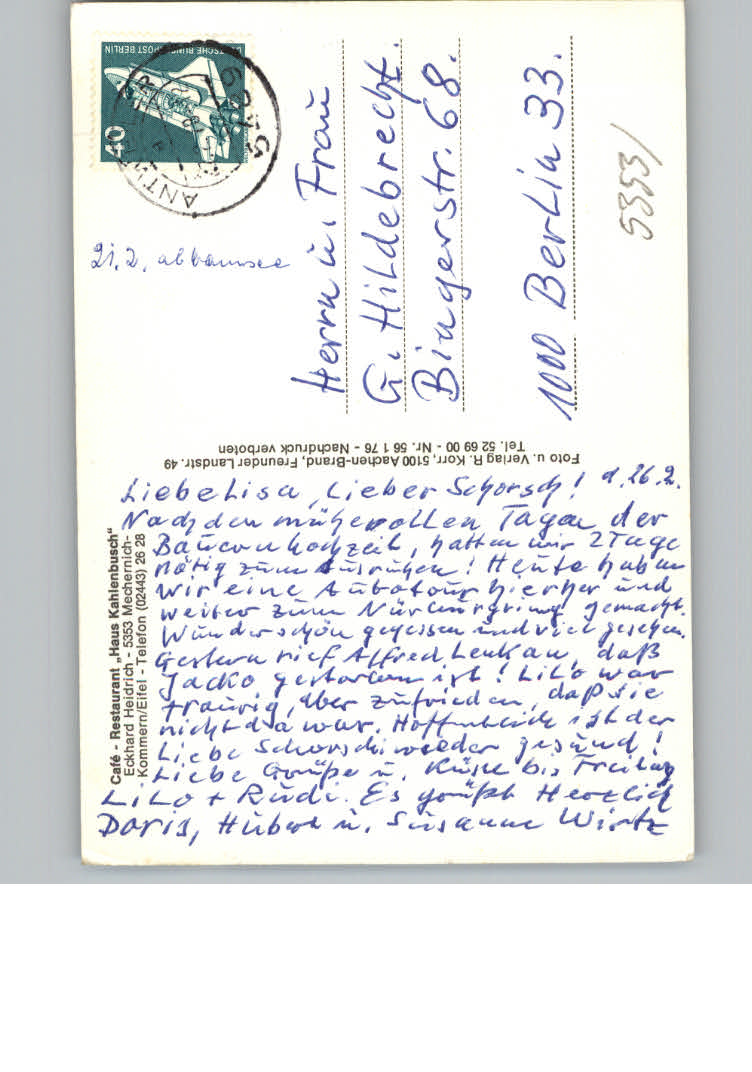 DEUTSCHE BUNDESPOST BERLIN
40
5489
21.2.
Herrn u. Frau
G. Hildebrecht.
Bingerstr. 68.
1000 Berlin 33.
5353/
Foto u. Verlag R. Korr, 5100 Aachen-Brand, Freunder Landstr. 49
Tel. 52 69 00 - Nr. 56 1 76 - Nachdruck verboten
Café - Restaurant „Haus Kahlenbusch“
Eckhard Heidrich - 5353 Mechernich-
Kommern/Eifel - Telefon (02443) 26 28
Liebe Lisa, Lieber Schorsch! d. 26.2.
Nach den mühevollen Tagen der
Bauernhochzeit, hatten wir 2 Tage
nötig zum Ausruhen! Heute haben
wir eine Autotour hierher und
weiter zum Nürburgring gemacht.
Wunderschön gegessen und viel gesehen.
Gestern rief Alfred Lenkau, daß
Jacko gestorben ist! Lilo war
traurig, aber zufrieden, daß sie
nicht da war. Hoffentlich ist der
Liebe Schorsch wieder gesund!
Liebe Grüße u. Küsse bis Freitag
Lilo + Rudi. Es grüßt Herzlich
Doris, Hubert u. Susanne Wirtz